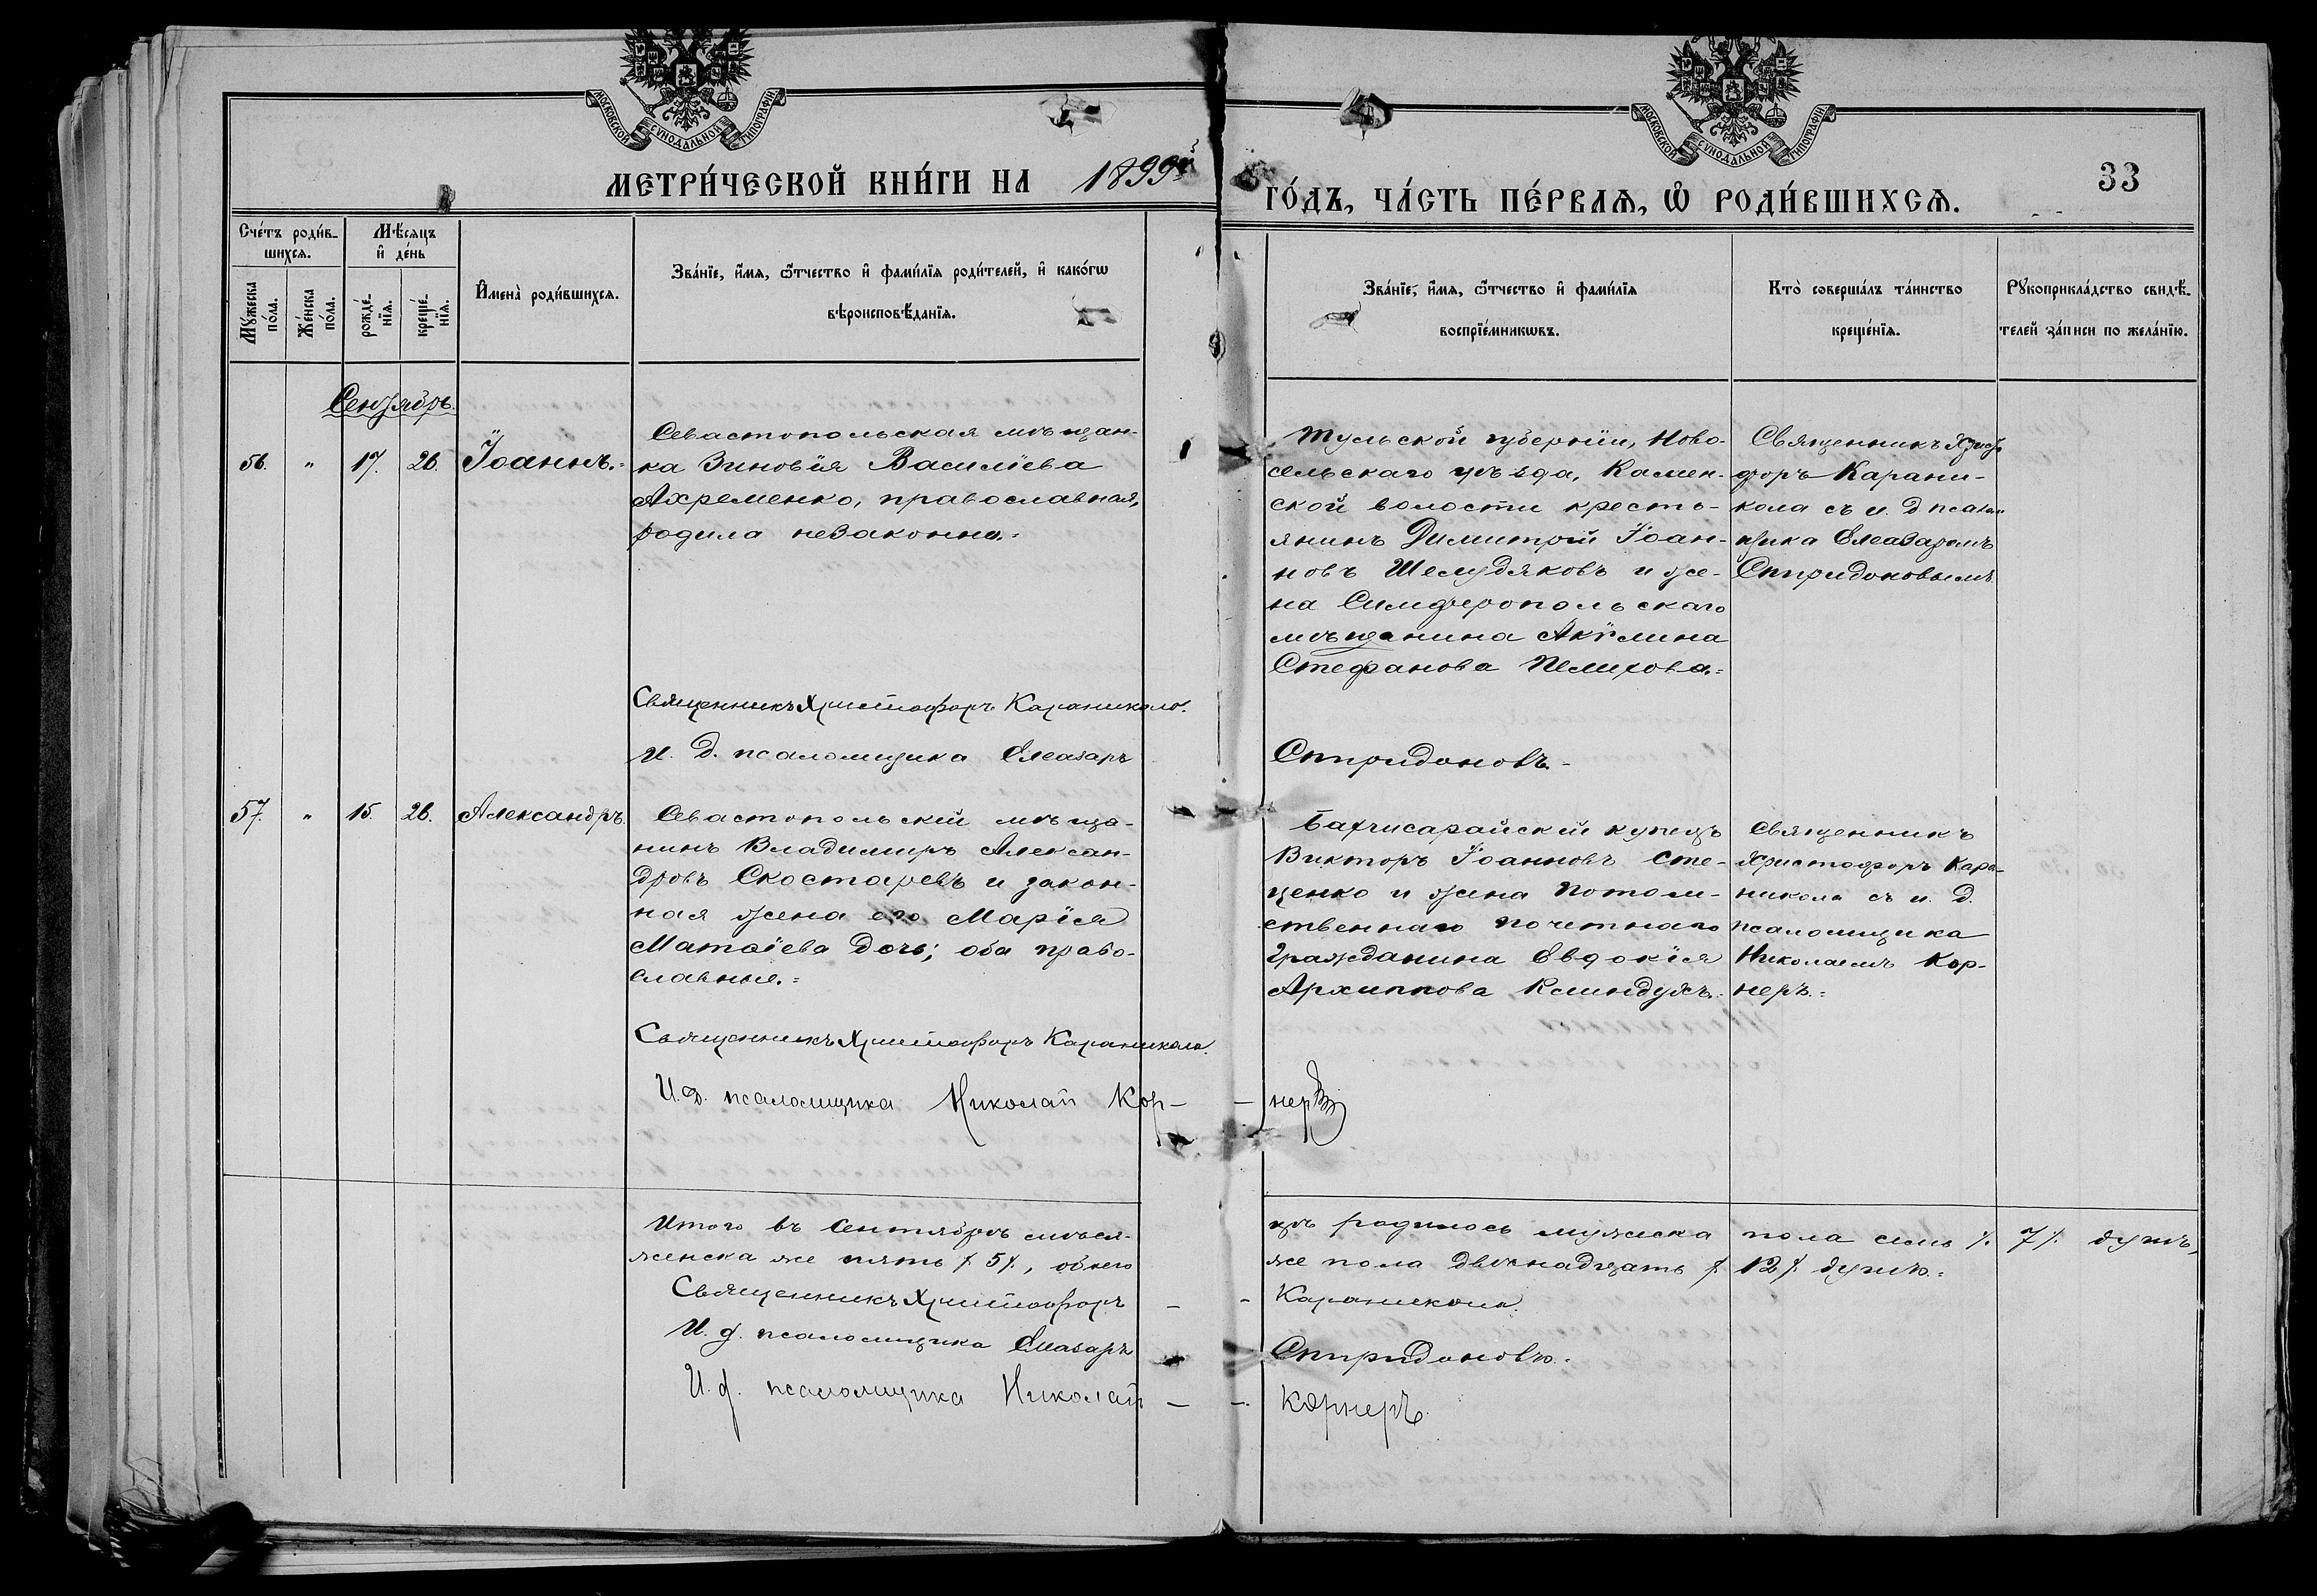 МОСКОВСКОЙ СѴНОДАЛЬНОЙ ТИПОГРАФІИ
МОСКОВСКОЙ СѴНОДАЛЬНОЙ ТИПОГРАФІИ
МЕТРИ́ЧЕСКОЙ КНИ́ГИ НА 1899й
ГО́ДЪ, ЧА́СТЬ ПЕ́РВАѦ, Ѡ РОДИ́ВШИХСѦ.
33
Сче́тъ роди́в-
шихсѧ.
Мѣ́сѧцъ
и҆ де́нь
Мꙋ́жеска
по́ла.
Же́нска
по́ла.
рожде́-
нїѧ.
креще́-
нїѧ.
И҆мена̀ роди́вшихсѧ.
Зва́нїе, и҆́мѧ, ѻ҆́тчество и҆ фами́лїѧ роди́телей, и҆ како́гѡ
вѣроисповѣ́данїѧ.
Зва́нїе, и҆́мѧ, ѻ҆́тчество и҆ фами́лїѧ
воспрїе́мникѡвъ.
Кто̀ соверша́лъ та́инство
креще́нїѧ.
Рꙋкоприкла́дство свидѣ́-
телей за́писи по жела́нїю.
Сентябрь.
56. " 17. 26. Іоаннъ.
Севастопольская мѣщан-
ка Зиновія Василіева
Ахременко, православная,
родила незаконно.
Тульской губерніи, Ново-
сельскаго уѣзда, Камен-
ской волости кресть-
янинъ Димитрій Іоан-
новъ Шелудяковъ и же-
на Симферопольскаго
мѣщанина Акилина
Стефанова Пелихова.
Священникъ Христо-
форъ Карани-
кола съ и. д. псалом-
щика Елеазаромъ
Спиридоновымъ
Священникъ Христофоръ Караникола.
И. д. псаломщика Елеазаръ Спиридоновъ.
57. " 15. 26. Александръ.
Севастопольскій мѣща-
нинъ Владимиръ Алексан-
дровъ Скостаревъ и закон-
ная жена его Марія
Матѳіева дочь; оба право-
славные.
Бахчисарайскій купецъ
Викторъ Іоанновъ Сте-
ценко и жена потом-
ственнаго почетнаго
гражданина Евдокія
Архиппова Климдужъ.
Священникъ
Христофоръ Кара-
никола съ и. д.
псаломщика
Николаемъ Кор-
неръ.
Священникъ Христофоръ Караникола.
И. д. псаломщика Николай Кор- - неръ
Итого въ Сентябрѣ мѣся- цѣ родилось мужеска пола семь /. 7/. душъ,
женска же пять /. 5/., обоего же пола двѣнадцать /. 12/. душъ.
Священникъ Христофоръ - - Караникола.
И. д. псаломщика Елеазаръ Спиридоновъ.
И. д. псаломщика Николай - - Корнеръ.